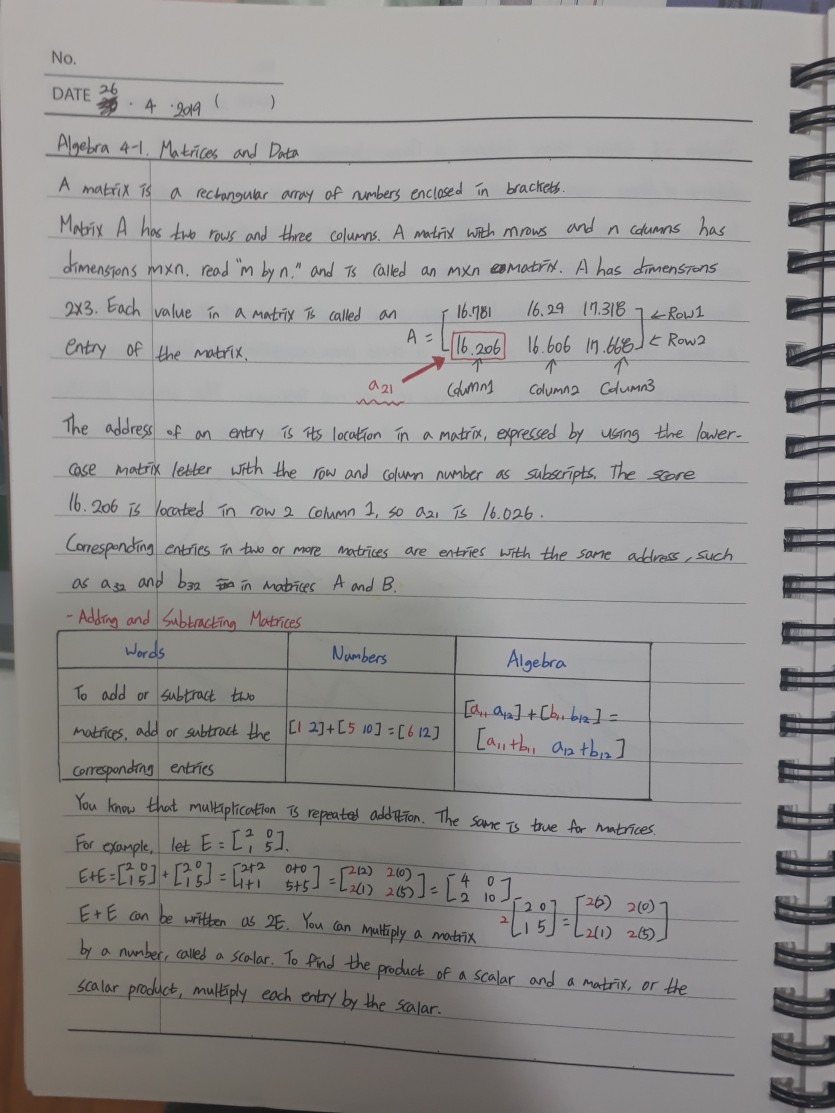 No.
DATE 26 . 4 . 2019 ( )
Algebra 4-1. Matrices and Data
A matrix is a rectangular array of numbers enclosed in brackets.
Matrix A has two rows and three columns. A matrix with m rows and n columns has
dimensions m×n, read "m by n." and is called an m×n matrix. A has dimensions
2×3. Each value in a matrix is called an
entry of the matrix.
A = [16.781 16.29 17.318] ← Row1
[16.206 16.606 17.668] ← Row2
a21 ↑ Column1 ↑ Column2 ↑ Column3
The address of an entry is its location in a matrix, expressed by using the lower-
case matrix letter with the row and column number as subscripts. The score
16.206 is located in row 2 column 1, so a21 is 16.026.
Corresponding entries in two or more matrices are entries with the same address, such
as a32 and b32 in matrices A and B.
- Adding and Subtracting Matrices
Words Numbers Algebra
To add or subtract two
matrices, add or subtract the
corresponding entries
[1 2]+[5 10]=[6 12]
[a11 a12]+[b11 b12]=
[a11+b11 a12+b12]
You know that multiplication is repeated addition. The same is true for matrices.
For example, let E = [2 0
1 5].
E+E=[2 0 + [2 0 = [2+2 0+0 = [2(2) 2(0) = [4 0
1 5] 1 5] 1+1 5+5] 2(1) 2(5)] 2 10]
E+E can be written as 2E. You can multiply a matrix
2[2 0 = [2(2) 2(0)
1 5] 2(1) 2(5)]
by a number, called a scalar. To find the product of a scalar and a matrix, or the
scalar product, multiply each entry by the scalar.